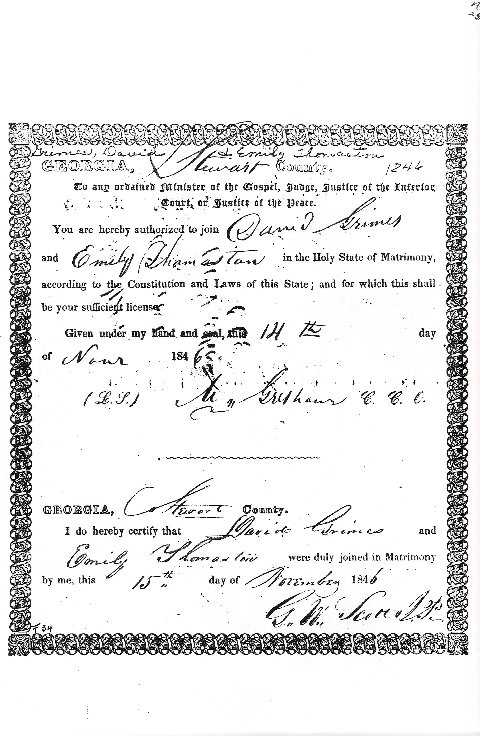 Grimes, David & Emily Thomaston
GEORGIA, Stewart County. 1846
To any ordained Minister of the Gospel, Judge, Justice of the Inferior
Court, or Justice of the Peace.
You are hereby authorized to join David Grimes
and Emily Thomaston in the Holy State of Matrimony,
according to the Constitution and Laws of this State; and for which this shall
be your sufficient license
Given under my hand and seal, this 14th day
of Novr 1846
(L.S.) M. Gresham C. C. O.
GEORGIA, Stewart County.
I do hereby certify that David Grimes and
Emily Thomaston were duly joined in Matrimony
by me, this 15th day of November 1846
G. W. Scott J.P.